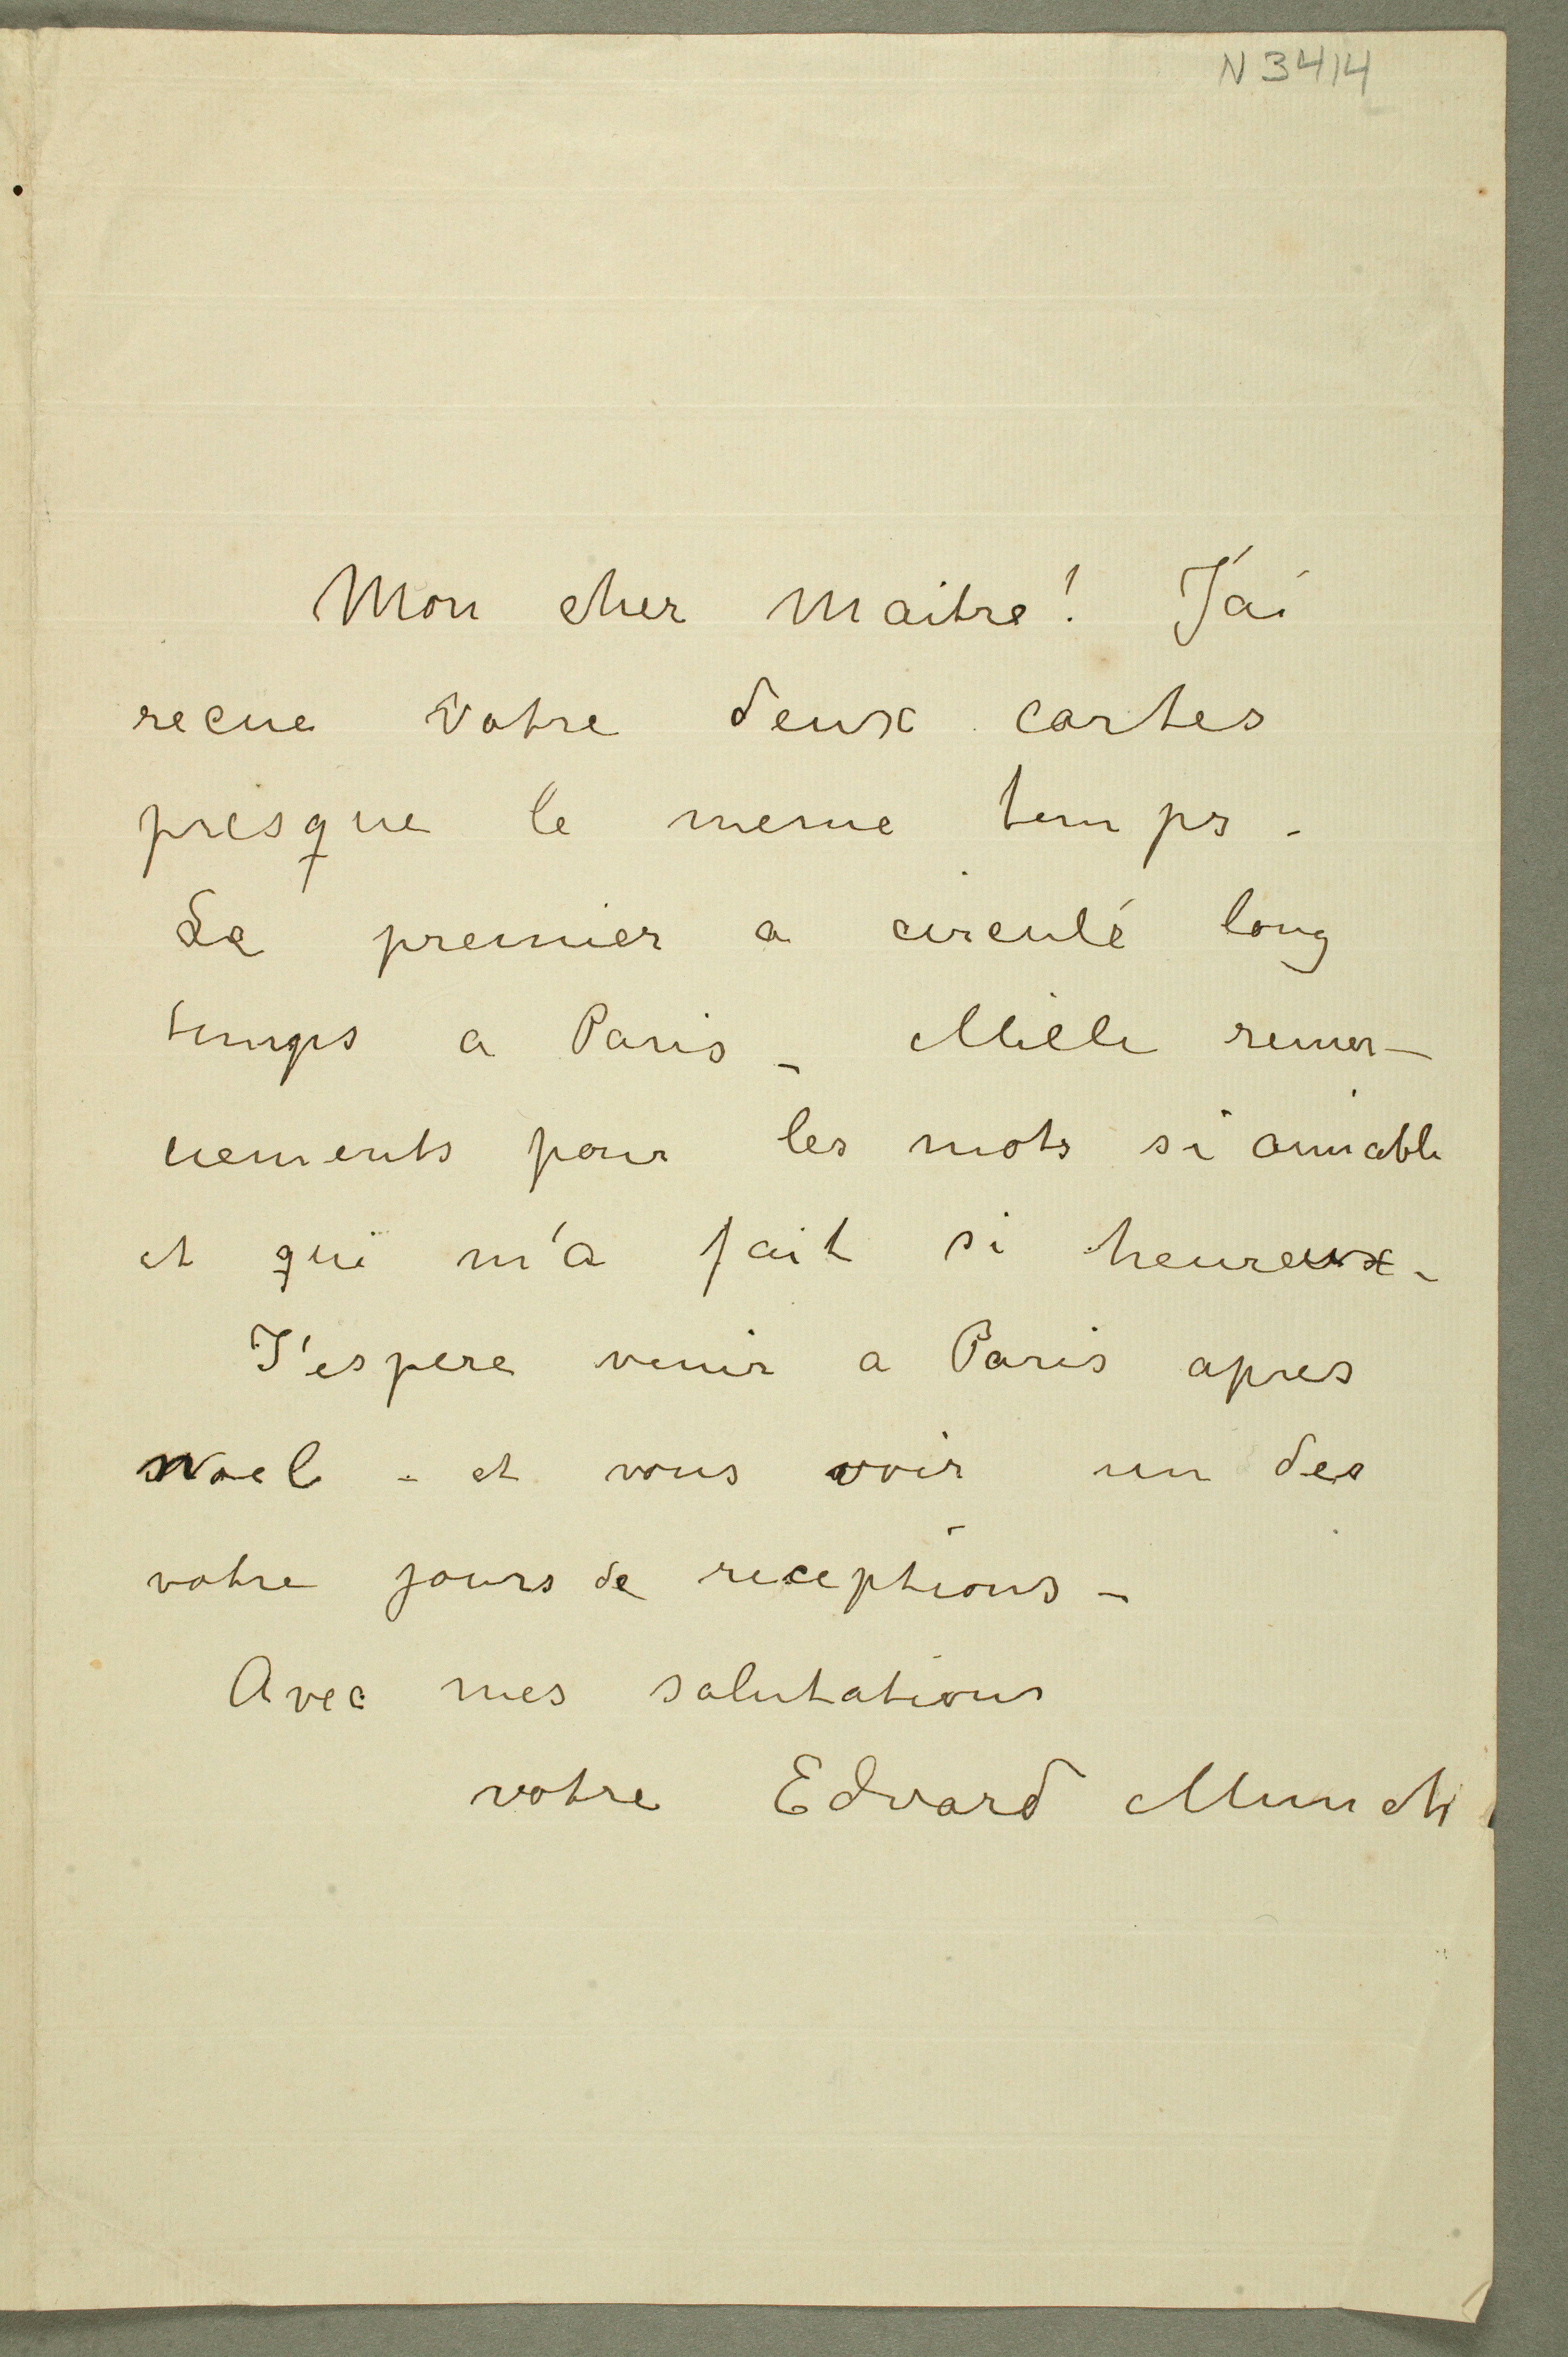 N 3414
Mon cher Maitre! J'ai
recue votre deux cartes
presque le meme temps -
Le premier a circulé long
temps a Paris - Mille remer-
ciements pour les mots si aimable
et qui m'a fait si heureux -
J'espere venir a Paris apres
Noel - et vous voir un des
votre jours de receptions -
Avec mes salutations
votre Edvard Munch